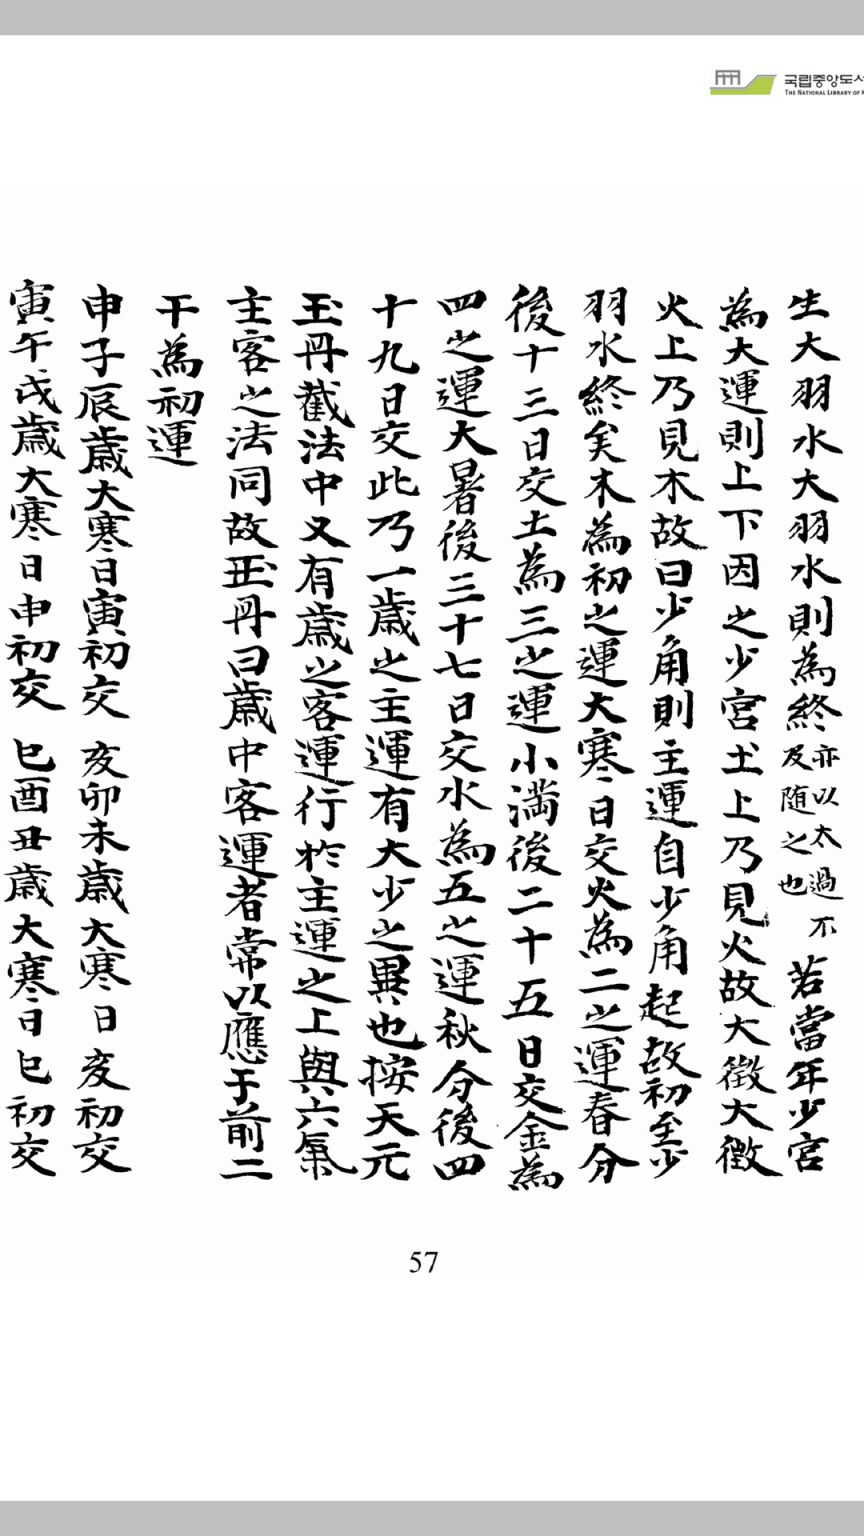 국립중앙도서
THE NATIONAL LIBRARY OF K
生大羽水大羽水則為終亦以太過不及随之也若當年少宮
為大運則上下因之少宮土上乃見火故大徵大徵
火上乃見木故曰少角則主運自少角起故初至少
羽水終矣木為初之運大寒日交火為二之運春分
後十三日交土為三之運小満後二十五日交金為
四之運大暑後三十七日交水為五之運秋分後四
十九日交此乃一歳之主運有大少之異也按天元
玉冊截法中又有歳之客運行於主運之上與六氣
主客之法同故玉冊曰歳中客運者常以應于前二
干為初運
申子辰歳大寒日寅初交 亥卯未歳大寒日亥初交
寅午戌歳大寒日申初交 巳酉丑歳大寒日巳初交
57